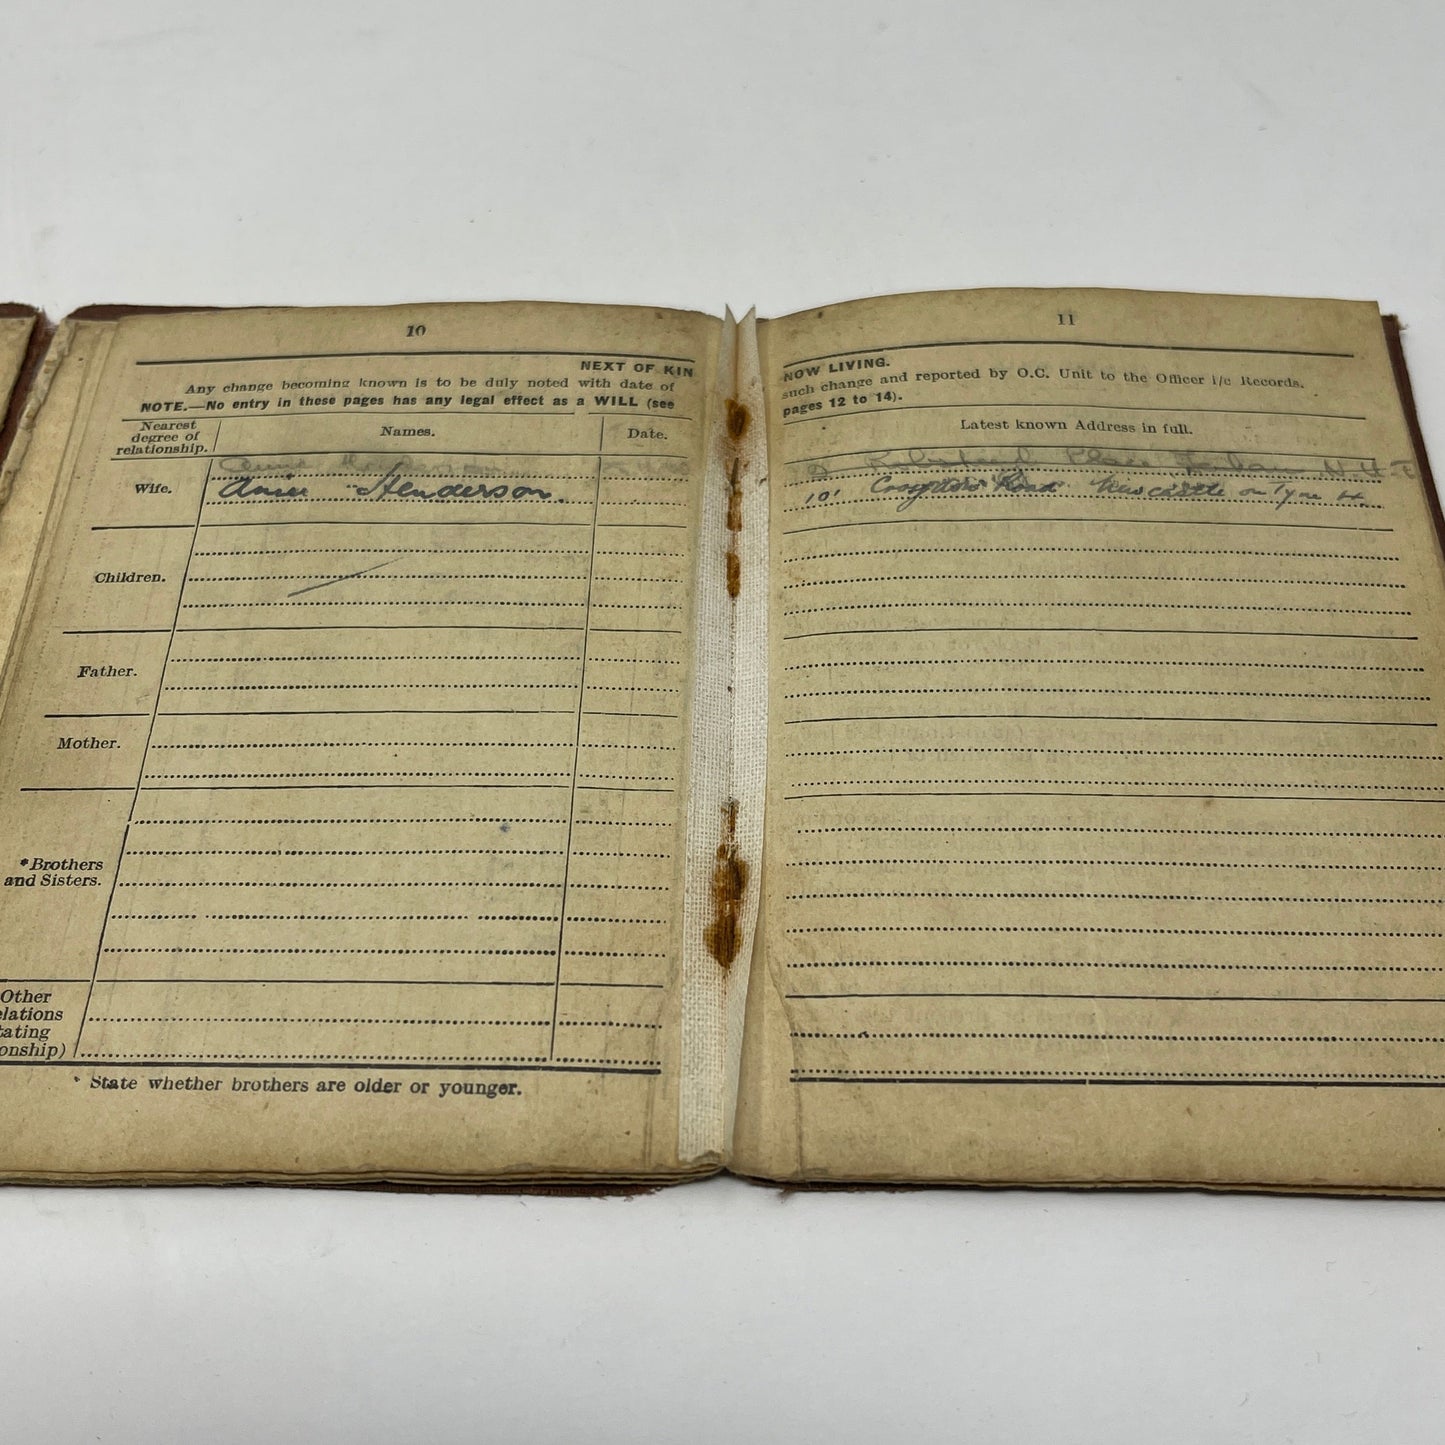 10
NEXT OF KIN
Any change becoming known is to be duly noted with date of
NOTE.—No entry in these pages has any legal effect as a WILL (see
Nearest
degree of
relationship.
Names.
Date.
Wife.
Annie Henderson.
Children.
Father.
Mother.
*Brothers
and Sisters.
Other
elations
tating
onship)
* State whether brothers are older or younger.
11
NOW LIVING.
such change and reported by O.C. Unit to the Officer i/c Records.
pages 12 to 14).
Latest known Address in full.
Place
101 Road Newcastle on Tyne 4.